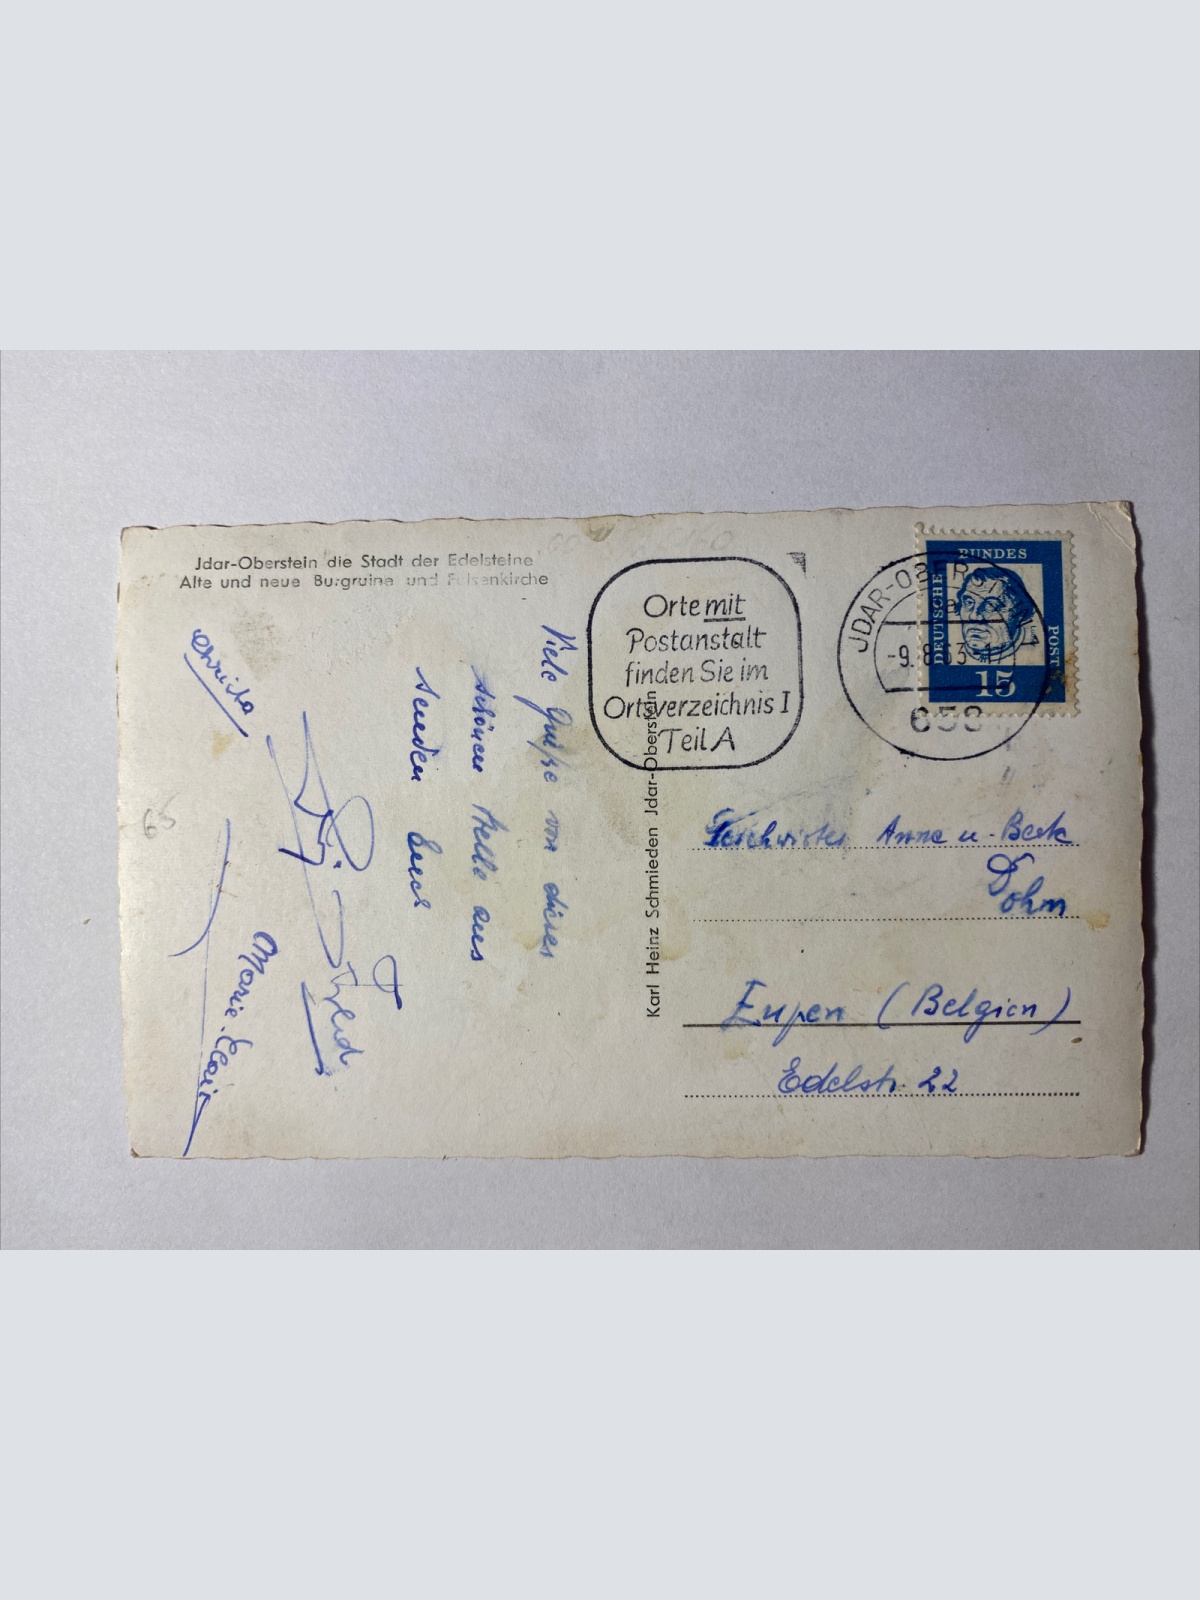 Jdar-Oberstein die Stadt der Edelsteine
Alte und neue Burgruine und Felsenkirche
Viele Grüße von dieser
schönen Stelle aus
senden Euch
Marie-Claire
65
Karl Heinz Schmieden Jdar-Oberstein
Orte mit
Postanstalt
finden Sie im
Ortsverzeichnis I
Teil A
JDAR-OBERSTEIN 1
-9.8.63-17
658
DEUTSCHE
BUNDES
POST
15
Geschwister Anna u.
Dohm
Eupen (Belgien)
Edelstr. 22